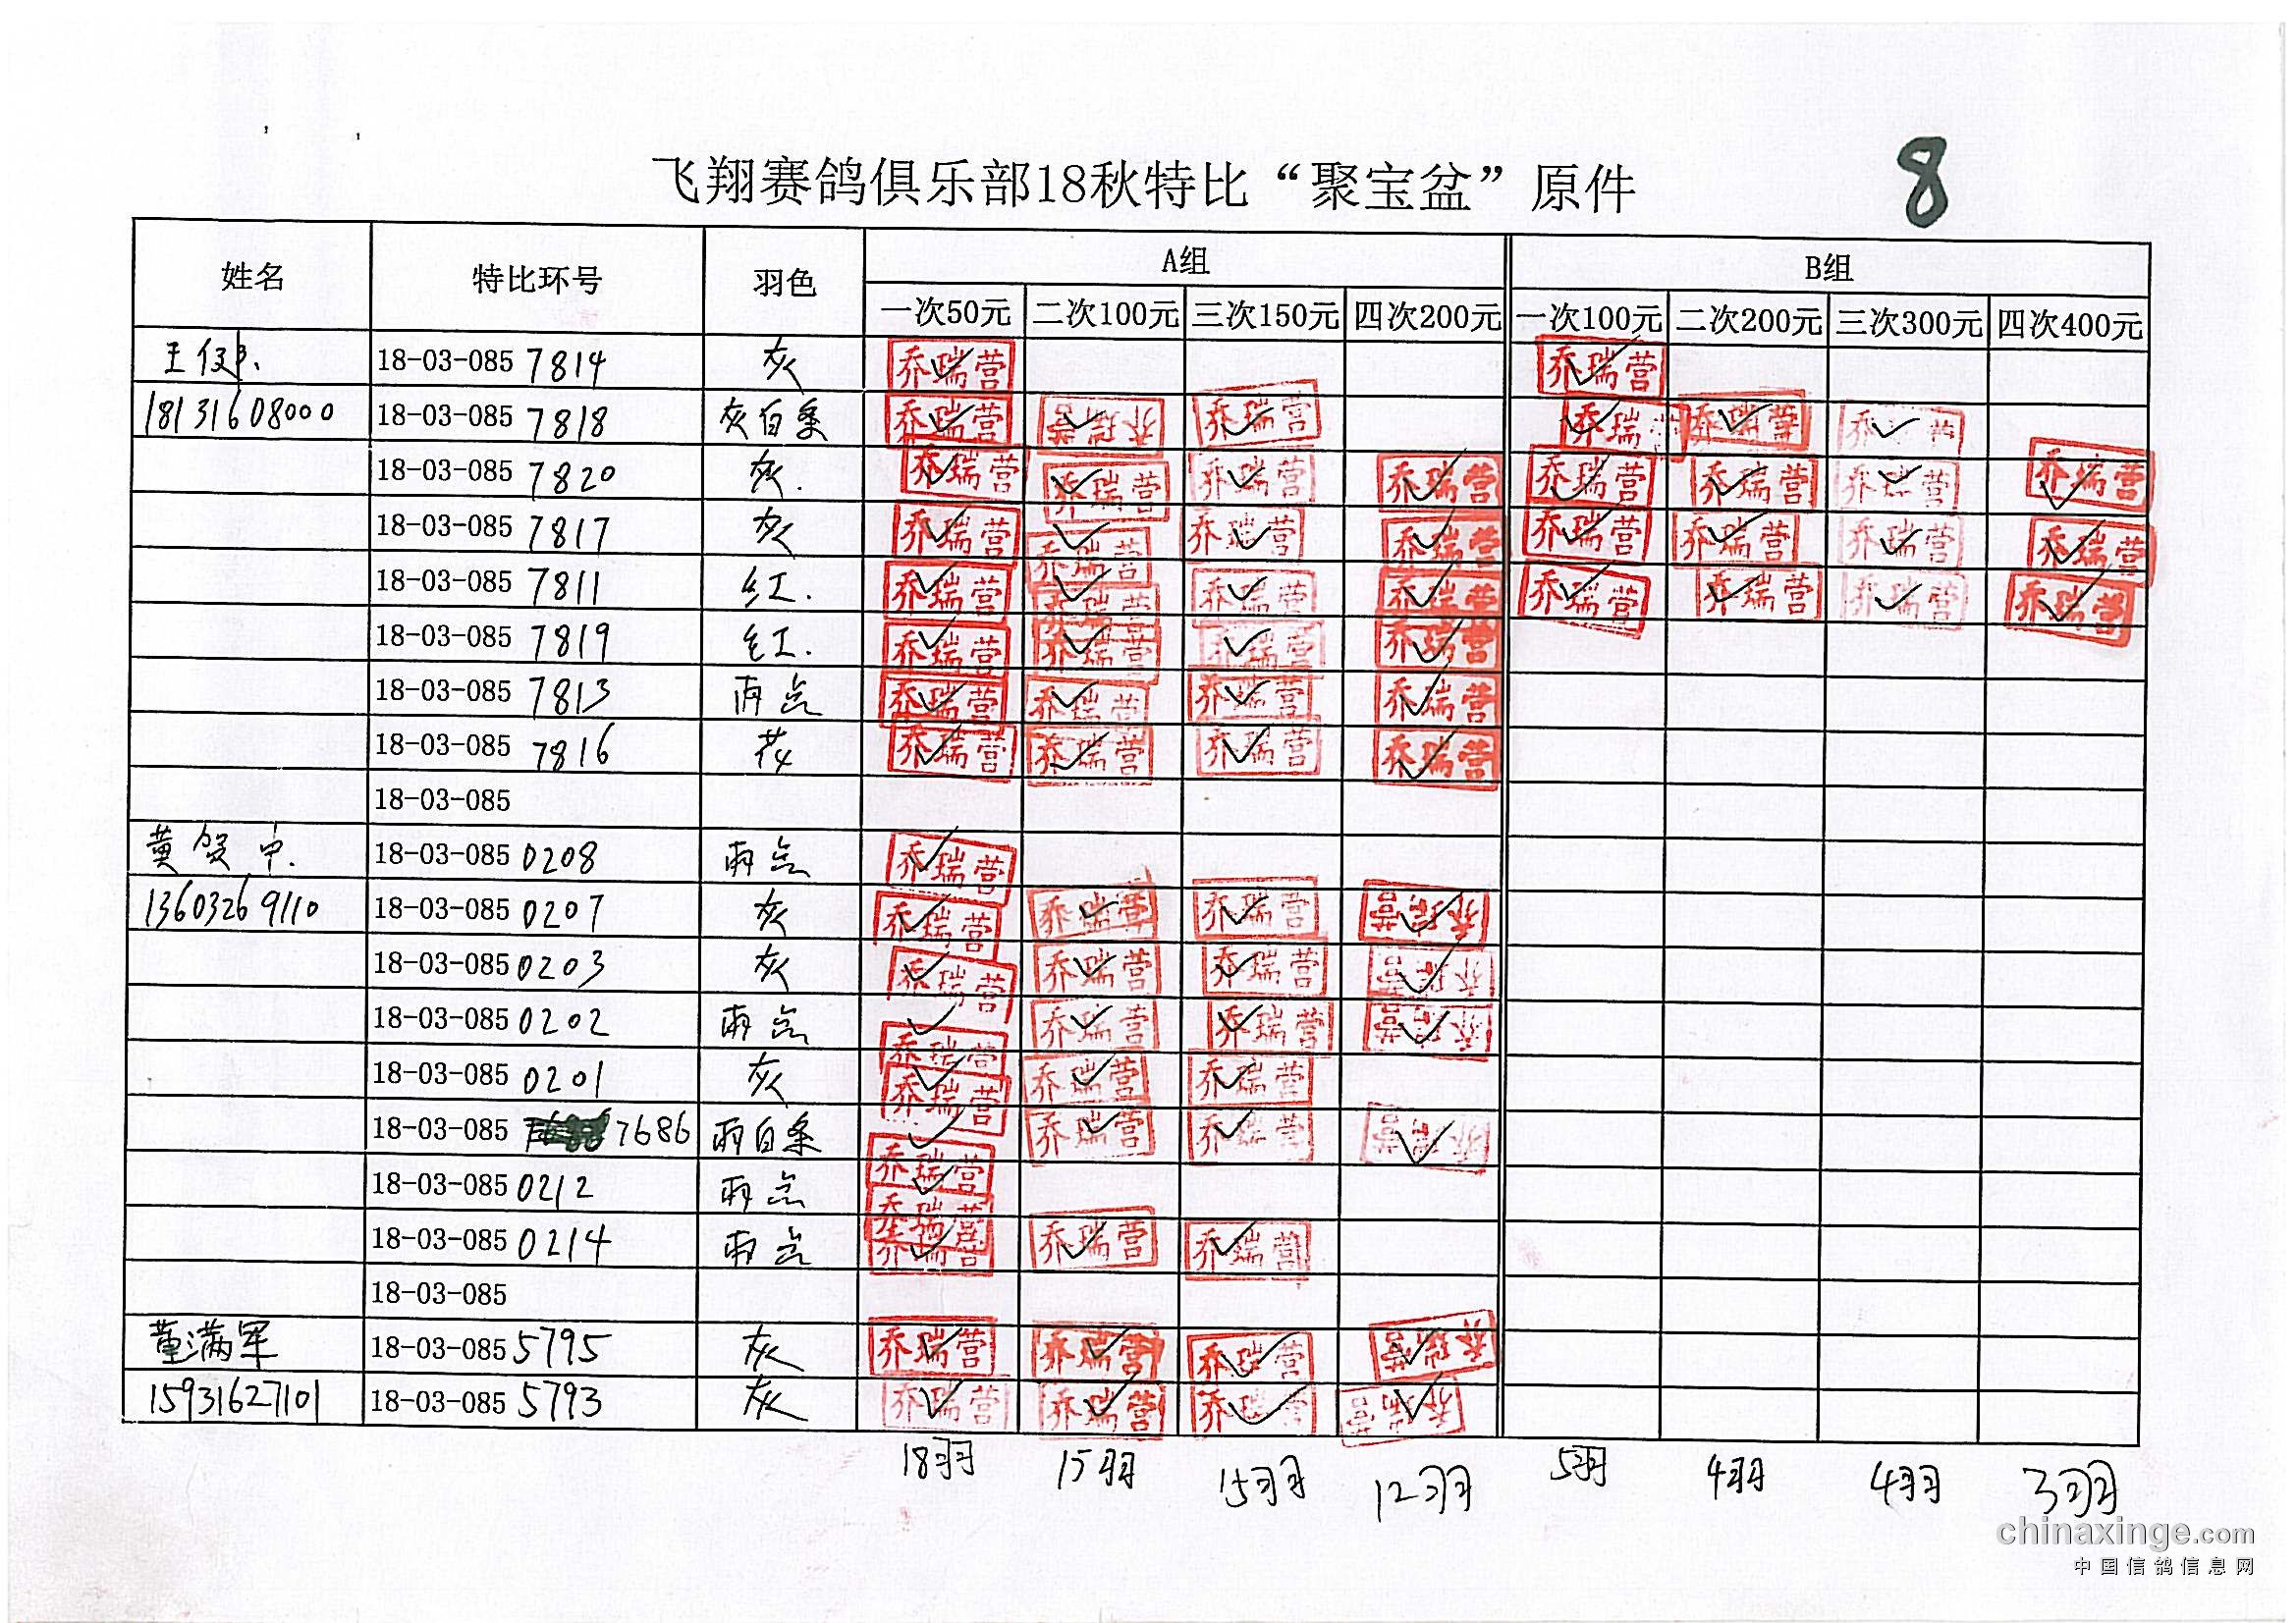 飞翔赛鸽俱乐部18秋特比“聚宝盆”原件 8
姓名 特比环号 羽色 A组 B组
一次50元 二次100元 三次150元 四次200元 一次100元 二次200元 三次300元 四次400元
王 18-03-085 7814 灰 乔瑞营 乔瑞营
18131608000 18-03-085 7818 灰白条 乔瑞营 乔瑞营 乔瑞营 乔瑞营 乔瑞营 乔瑞营
18-03-085 7820 灰. 乔瑞营 乔瑞营 乔瑞营 乔瑞营 乔瑞营 乔瑞营 乔瑞营 乔瑞营
18-03-085 7817 灰 乔瑞营 乔瑞营 乔瑞营 乔瑞营 乔瑞营 乔瑞营 乔瑞营 乔瑞营
18-03-085 7811 红. 乔瑞营 乔瑞营 乔瑞营 乔瑞营 乔瑞营 乔瑞营 乔瑞营 乔瑞营
18-03-085 7819 红. 乔瑞营 乔瑞营 乔瑞营 乔瑞营
18-03-085 7813 雨点 乔瑞营 乔瑞营 乔瑞营 乔瑞营
18-03-085 7816 花 乔瑞营 乔瑞营 乔瑞营 乔瑞营
18-03-085
黄贺中. 18-03-085 0208 雨点 乔瑞营
13603269110 18-03-085 0207 灰 乔瑞营 乔瑞营 乔瑞营 乔瑞营
18-03-085 0203 灰 乔瑞营 乔瑞营 乔瑞营 乔瑞营
18-03-085 0202 雨点 乔瑞营 乔瑞营 乔瑞营 乔瑞营
18-03-085 0201 灰 乔瑞营 乔瑞营 乔瑞营
18-03-085 7686 雨白条 乔瑞营 乔瑞营 乔瑞营 乔瑞营
18-03-085 0212 雨点 乔瑞营
18-03-085 0214 雨点 乔瑞营 乔瑞营 乔瑞营
18-03-085
董满军 18-03-085 5795 灰 乔瑞营 乔瑞营 乔瑞营 乔瑞营
15931627101 18-03-085 5793 灰 乔瑞营 乔瑞营 乔瑞营 乔瑞营
18羽 15羽 15羽 12羽 5羽 4羽 4羽 3羽
chinaxinge.com
中国信鸽信息网